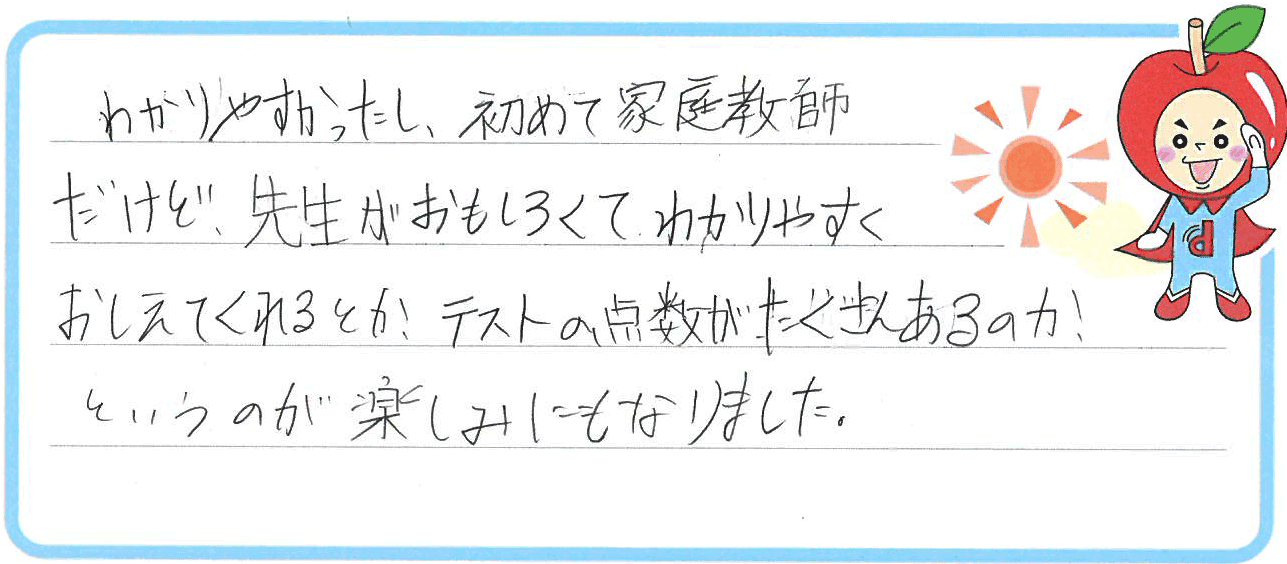 わかりやすかったし、初めて家庭教師
だけど、先生がおもしろくてわかりやすく
おしえてくれるとか!テストの点数がたくさんあるのか!
というのが楽しみにもなりました。
d